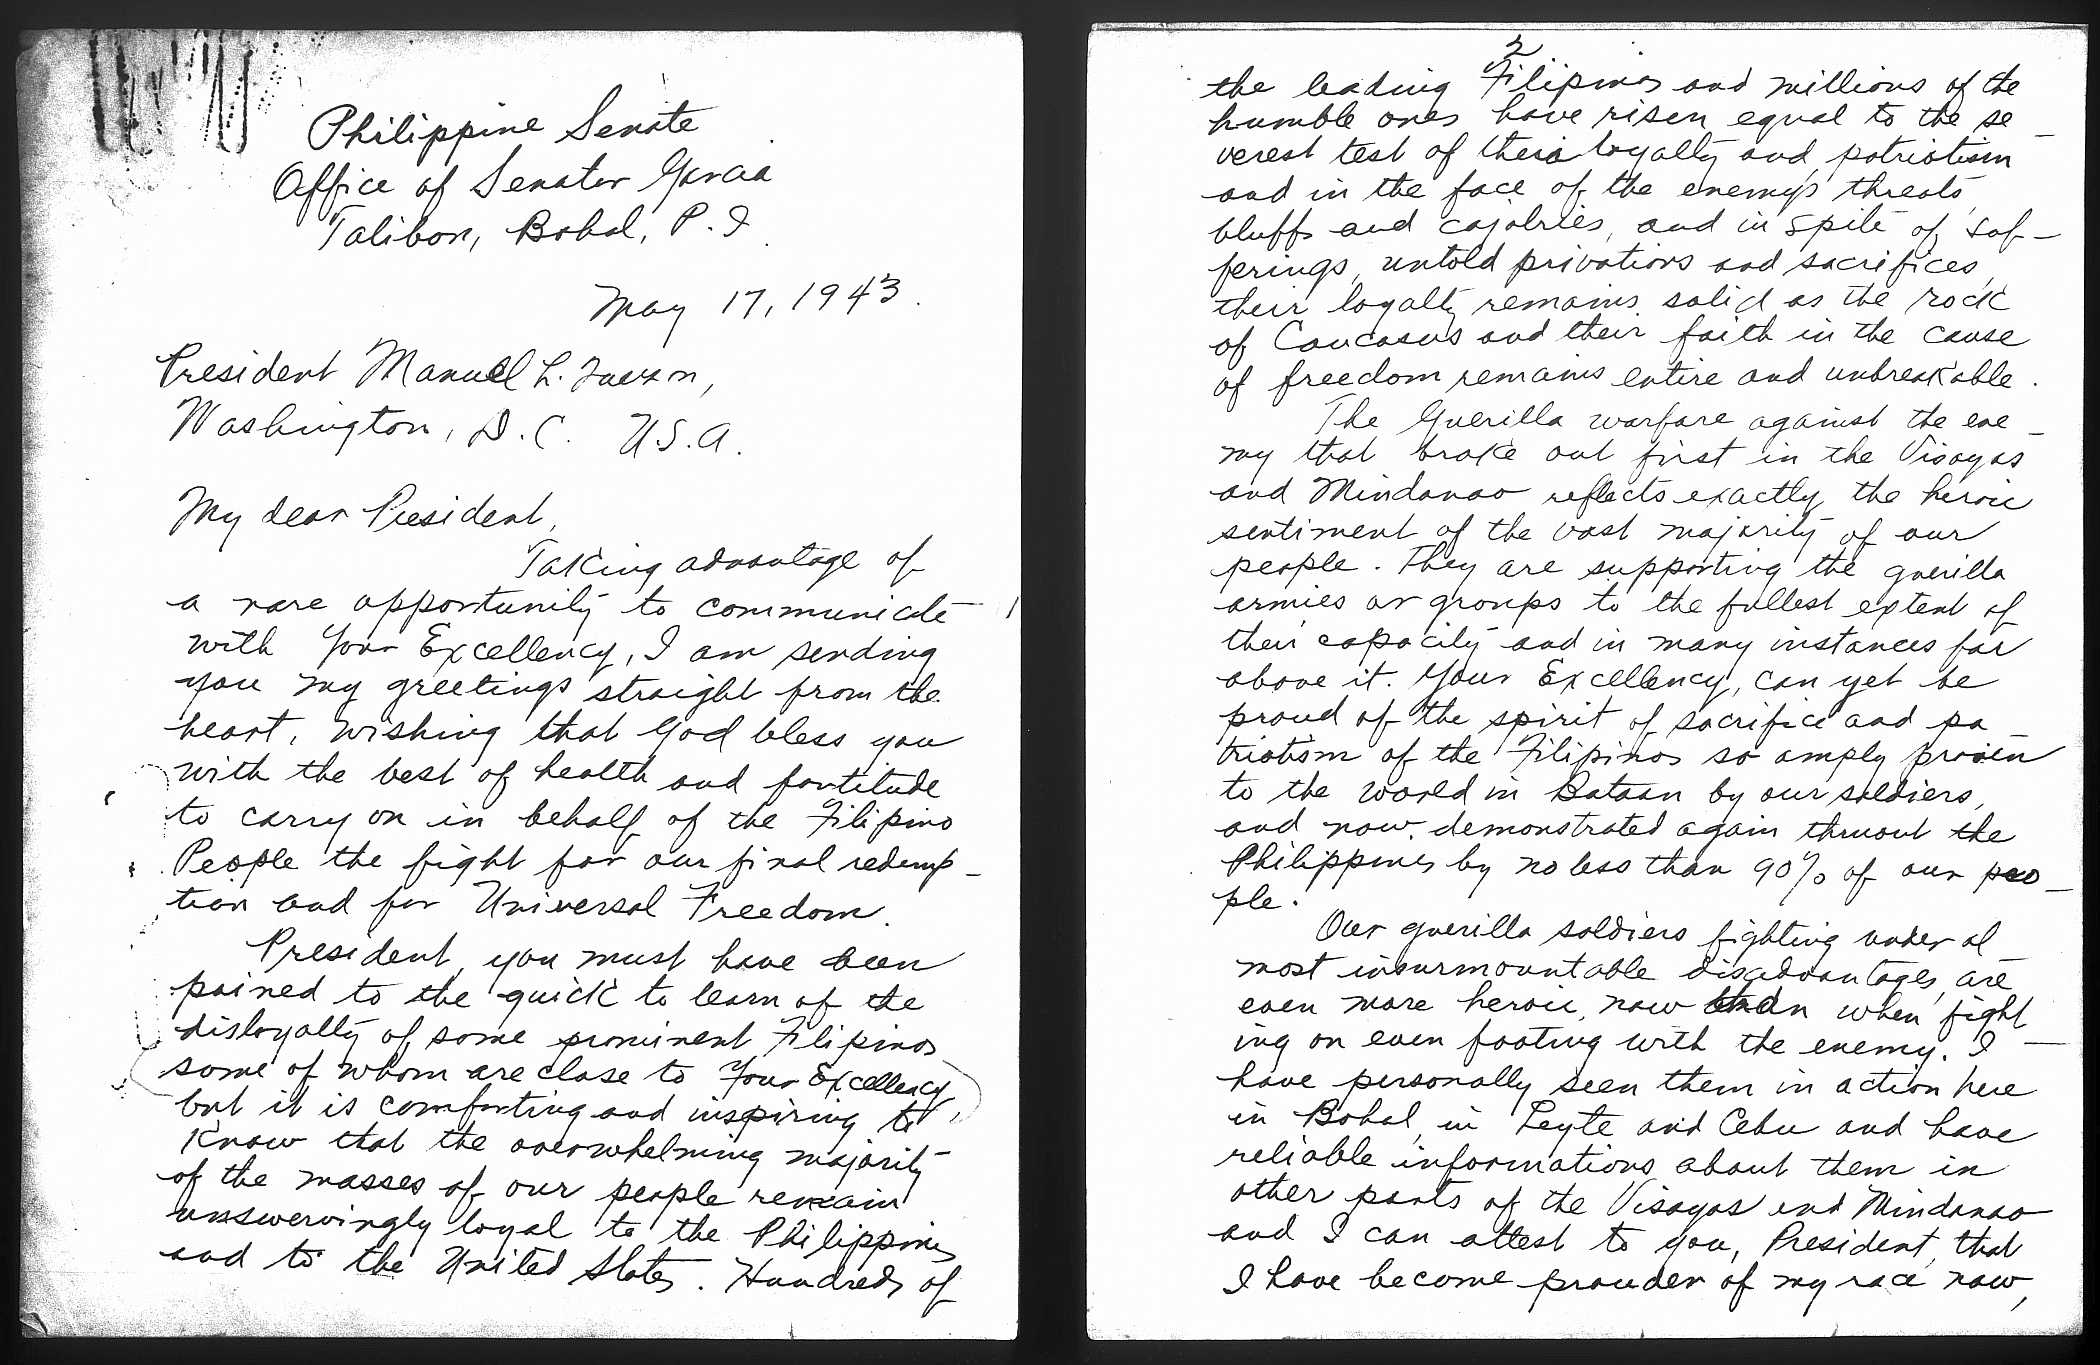 Philippine Senate
Office of Senator Garcia
Talibon, Bohol, P.I.
May 17, 1943.
President Manuel L. Quezon,
Washington, D.C. U.S.A.
My dear President,
Taking advantage of
a rare opportunity to communicate
with Your Excellency, I am sending
you my greetings straight from the
heart, wishing that God bless you
with the best of health and fortitude
to carry on in behalf of the Filipino
People the fight for our final redemp-
tion and for Universal Freedom.
President, you must have been
pained to the quick to learn of the
disloyalty of some prominent Filipinos
some of whom are close to Your Excellency,
but it is comforting and inspiring to
know that the overwhelming majority
of the masses of our people remain
unswervingly loyal to the Philippines
and to the United States. Hundreds of
2
the leading Filipinos and millions of the
humble ones have risen equal to the se-
verest test of their loyalty and patriotism
and in the face of the enemy's threats,
bluffs and cajolries, and in spite of suf-
ferings, untold privations and sacrifices,
their loyalty remains solid as the rock
of Caucasus and their faith in the cause
of freedom remains entire and unbreakable.
The Guerilla warfare against the ene-
my that broke out first in the Visayas
and Mindanao reflects exactly the heroic
sentiment of the vast majority of our
people. They are supporting the guerilla
armies or groups to the fullest extent of
their capacity and in many instances far
above it. Your Excellency, can yet be
proud of the spirit of sacrifice and pa
triotism of the Filipinos so amply proven
to the world in Bataan by our soldiers,
and now demonstrated again thruout the
Philippines by no less than 90% of our peo-
ple.
Our guerilla soldiers fighting under al
most insurmountable disadvantages, are
even more heroic, now than when fight
ing on even footing with the enemy. I
have personally seen them in action here
in Bohol, in Leyte and Cebu and have
reliable informations about them in
other parts of the Visayas and Mindanao
and I can attest to you, President, that
I have become prouder of my race now,